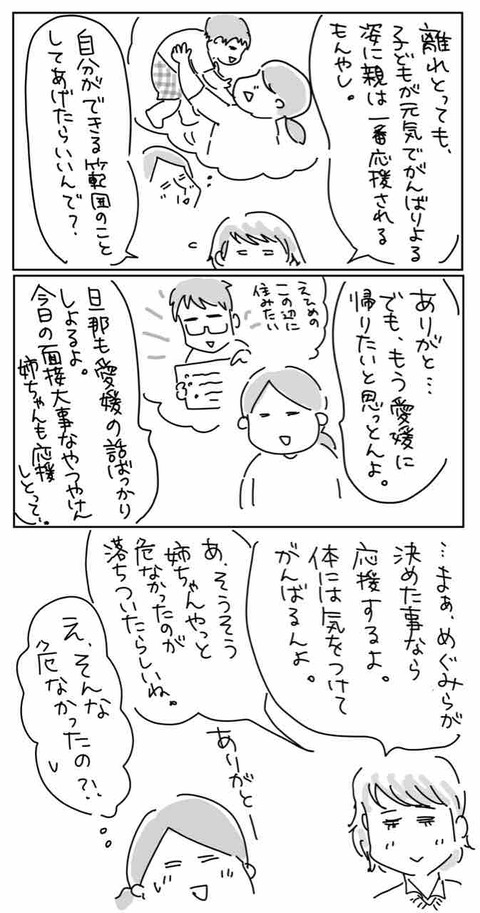 離れとっても、
子どもが元気でがんばりよる
姿に親は一番応援される
もんやし。
自分ができる範囲のこと
してあげたらいいんで？
ありがと…
でも、もう愛媛に
帰りたいと思っとんよ。
えひめの
この辺に
住みたい
旦那も愛媛の話ばっかり
しよるよ。
今日の面接大事なやつやけん
姉ちゃんも応援
しとって…
…まぁ、めぐみらが
決めた事なら
応援するよ。
体には気をつけて
がんばるんよ。
あ、そうそう
姉ちゃんやっと
危なかったのが
落ちついたらしいね。
ありがとー
え、そんな
危なかったの?!